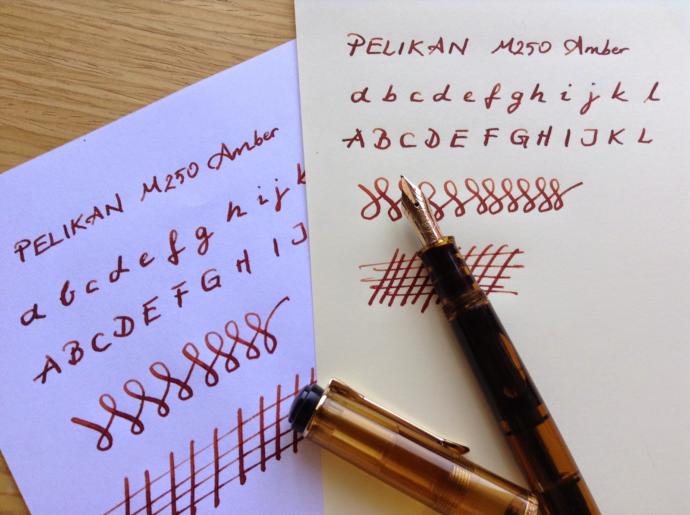 PELIKAN M250 Amber
a b c d e f g h i j k l
A B C D E F G H I J K L
PELIKAN M250 Amber
a b c d e f g h i j k
A B C D E F G H I J